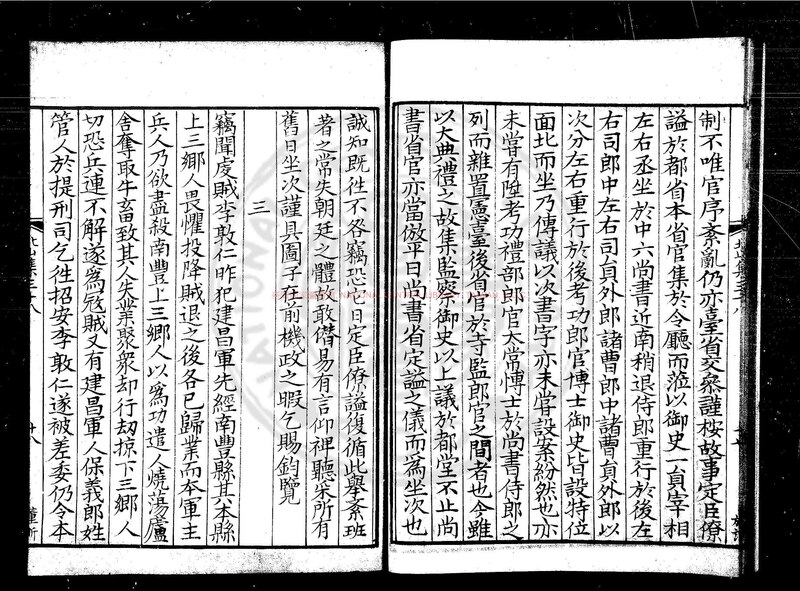 制不唯官序紊亂仍亦臺省交叅謹桉故事定臣僚
謚於都省本省官集於令廳而涖以御史一貟宰相
左右丞坐於中六尚書近南稍退侍郎重行於後左
右司郎中左右司貟外郎諸曹郎中諸曹貟外郎以
次分左右重行於後考功郎官博士御史皆設特位
面北而坐乃傳議以次書字亦未甞設案紛然也亦
未甞有陞考功禮部郎官太常愽士於尚書侍郎之
列而雜置憲臺後省官於寺監郎官之間者也今雖
以大典禮之故集監察御史以上議於都堂不止尚
書省官亦當倣平日尚書省定謚之儀而爲坐次也
誠知既徃不咎竊恐它日定臣僚謚復循此舉紊班
著之常失朝廷之體故敢僣易有言仰裨聽采所有
舊日坐次謹具圖子在前機政之暇乞賜鈞覽
三
竊聞虔賊李敦仁昨犯建昌軍先經南豐縣其本縣
上三鄉人畏懼投降賊退之後各已歸業而本軍主
兵人乃欲盡殺南豐上三鄉人以爲功遣人燒蕩廬
舎奪取牛畜致其人失業聚衆却行刼掠下三鄉人
切恐兵連不解遂爲㓂賊又有建昌軍人保義郎姓
管人於提刑司乞徃招安李敦仁遂被差委仍令本
北山集三十八
十八